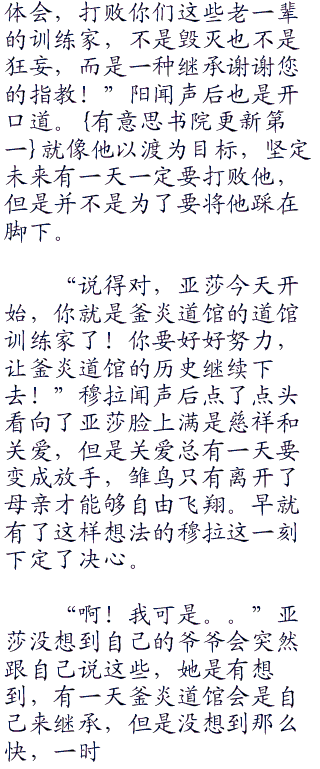 体会，打败你们这些老一辈
的训练家，不是毁灭也不是
狂妄，而是一种继承谢谢您
的指教！”阳闻声后也是开
口道。{有意思书院更新第
一}就像他以渡为目标，坚定
未来有一天一定要打败他，
但是并不是为了要将他踩在
脚下。
“说得对，亚莎今天开
始，你就是釜炎道馆的道馆
训练家了！你要好好努力，
让釜炎道馆的历史继续下
去！”穆拉闻声后点了点头
看向了亚莎脸上满是慈祥和
关爱，但是关爱总有一天要
变成放手，雏鸟只有离开了
母亲才能够自由飞翔。早就
有了这样想法的穆拉这一刻
下定了决心。
“啊！我可是。。”亚
莎没想到自己的爷爷会突然
跟自己说这些，她是有想
到，有一天釜炎道馆会是自
己来继承，但是没想到那么
快，一时